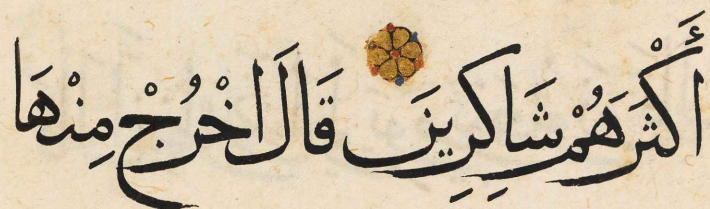 أَكْثَرَهُمْ شَاكِرِينَ قَالَ اخْرُجْ مِنْهَا